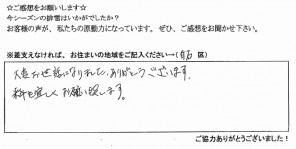 ☆ご感想をお願いします☆
今シーズンの排雪はいかがでしたか？
お客様の声が、私たちの原動力になっています。ぜひ、ご感想をお聞かせ下さい。
※差支えなければ、お住まいの地域をご記入ください→（ 区）
大変お世話になりました。ありがとうございます。
来年も宜しくお願い致します。
ご協力ありがとうございました！